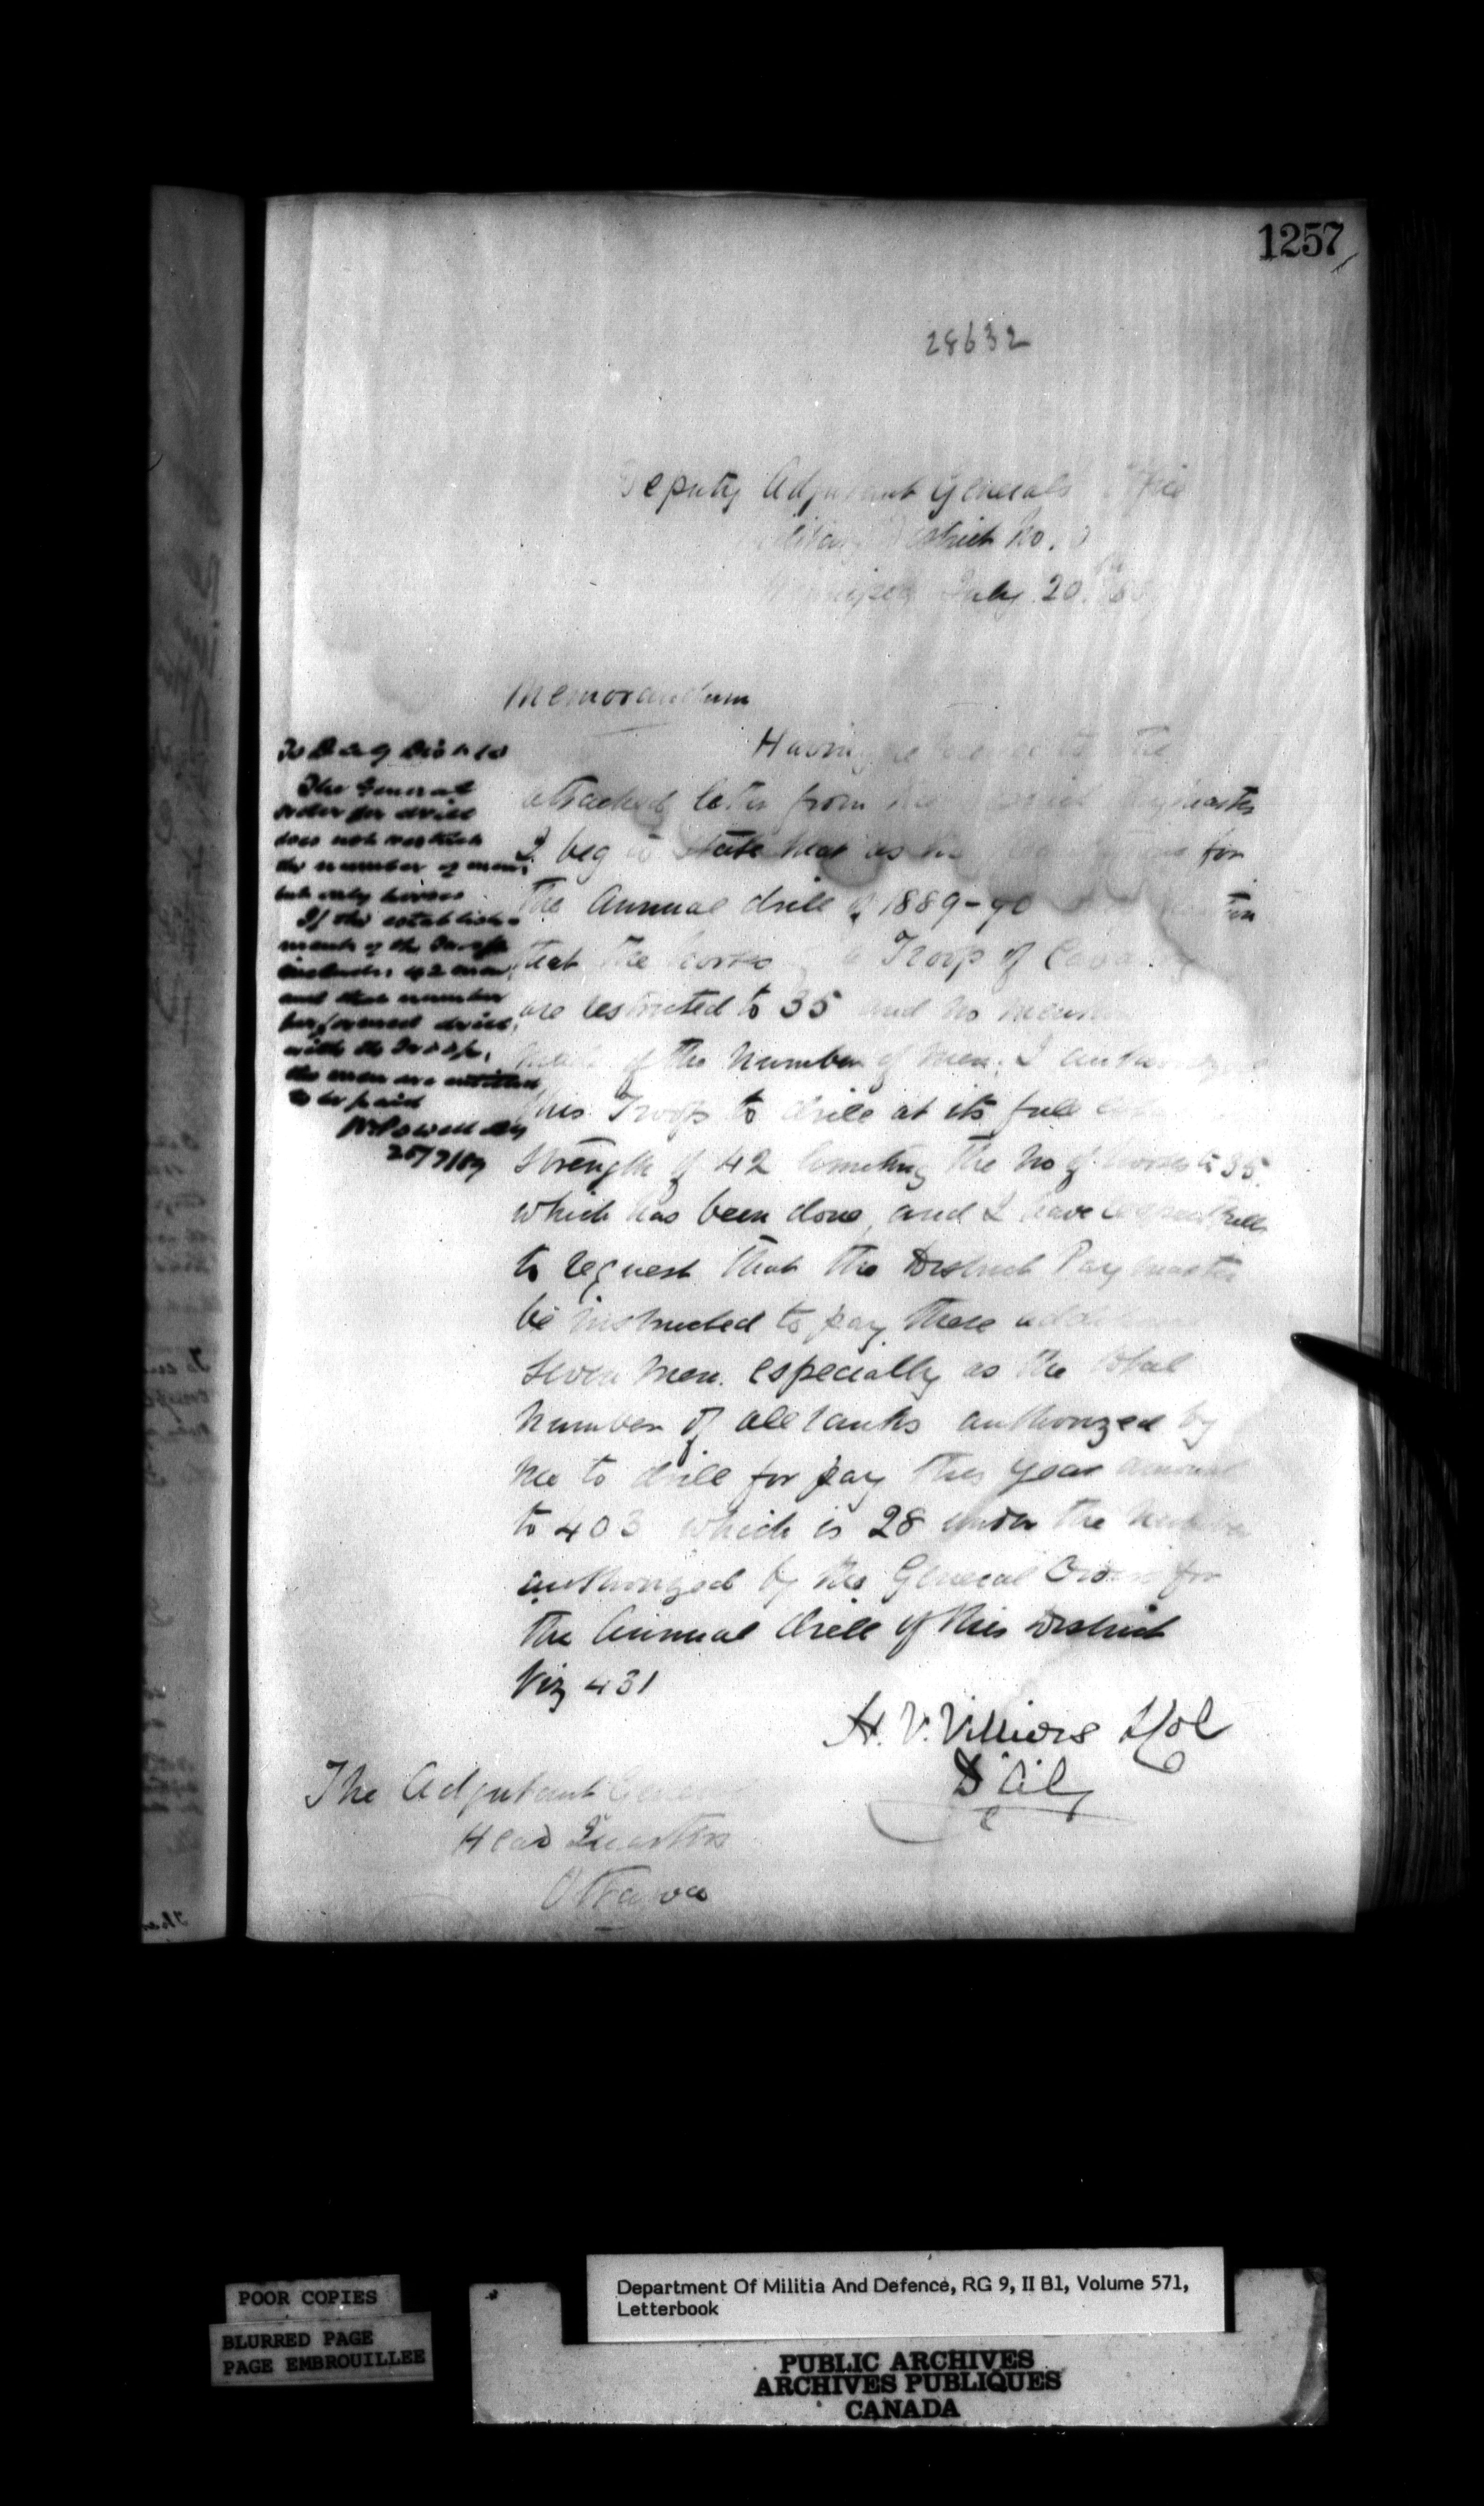 1257
28632
Deputy Adjutant Generals Office
District No.
July 20th
Memorandum
Having
attached letter from the Paymaster
I beg to state that as the for
the Annual drill of 1889-90
that the horses Troop of Cavalry
are restricted to 35 and no mention
made of the number of men. I authorized
this Troop to drill at its full
strength of 42 limiting the No of horses to 35.
which has been done, and I have
to request that the District Paymaster
be instructed to pay these additional
seven men. especially as the total
number of all ranks authorized by
me to drill for pay this year amount
to 403 which is 28 under the number
authorized by the General Orders for
the Annual drill of this District
Viz 431
H. V. Villiers
The Adjutant General
Head Quarters
Ottawa
To D A G Dis No 10
The General
order for drill
does not restrict
the number of men,
but only horses
If the establish-
ment of the Troop
includes 42 men,
and that number
performed drill,
with the Troop,
the men are entitled
to be paid
W Powell AG
25/7/89
POOR COPIES
BLURRED PAGE
PAGE EMBROUILLEE
Department Of Militia And Defence, RG 9, II B1, Volume 571,
Letterbook
PUBLIC ARCHIVES
ARCHIVES PUBLIQUES
CANADA